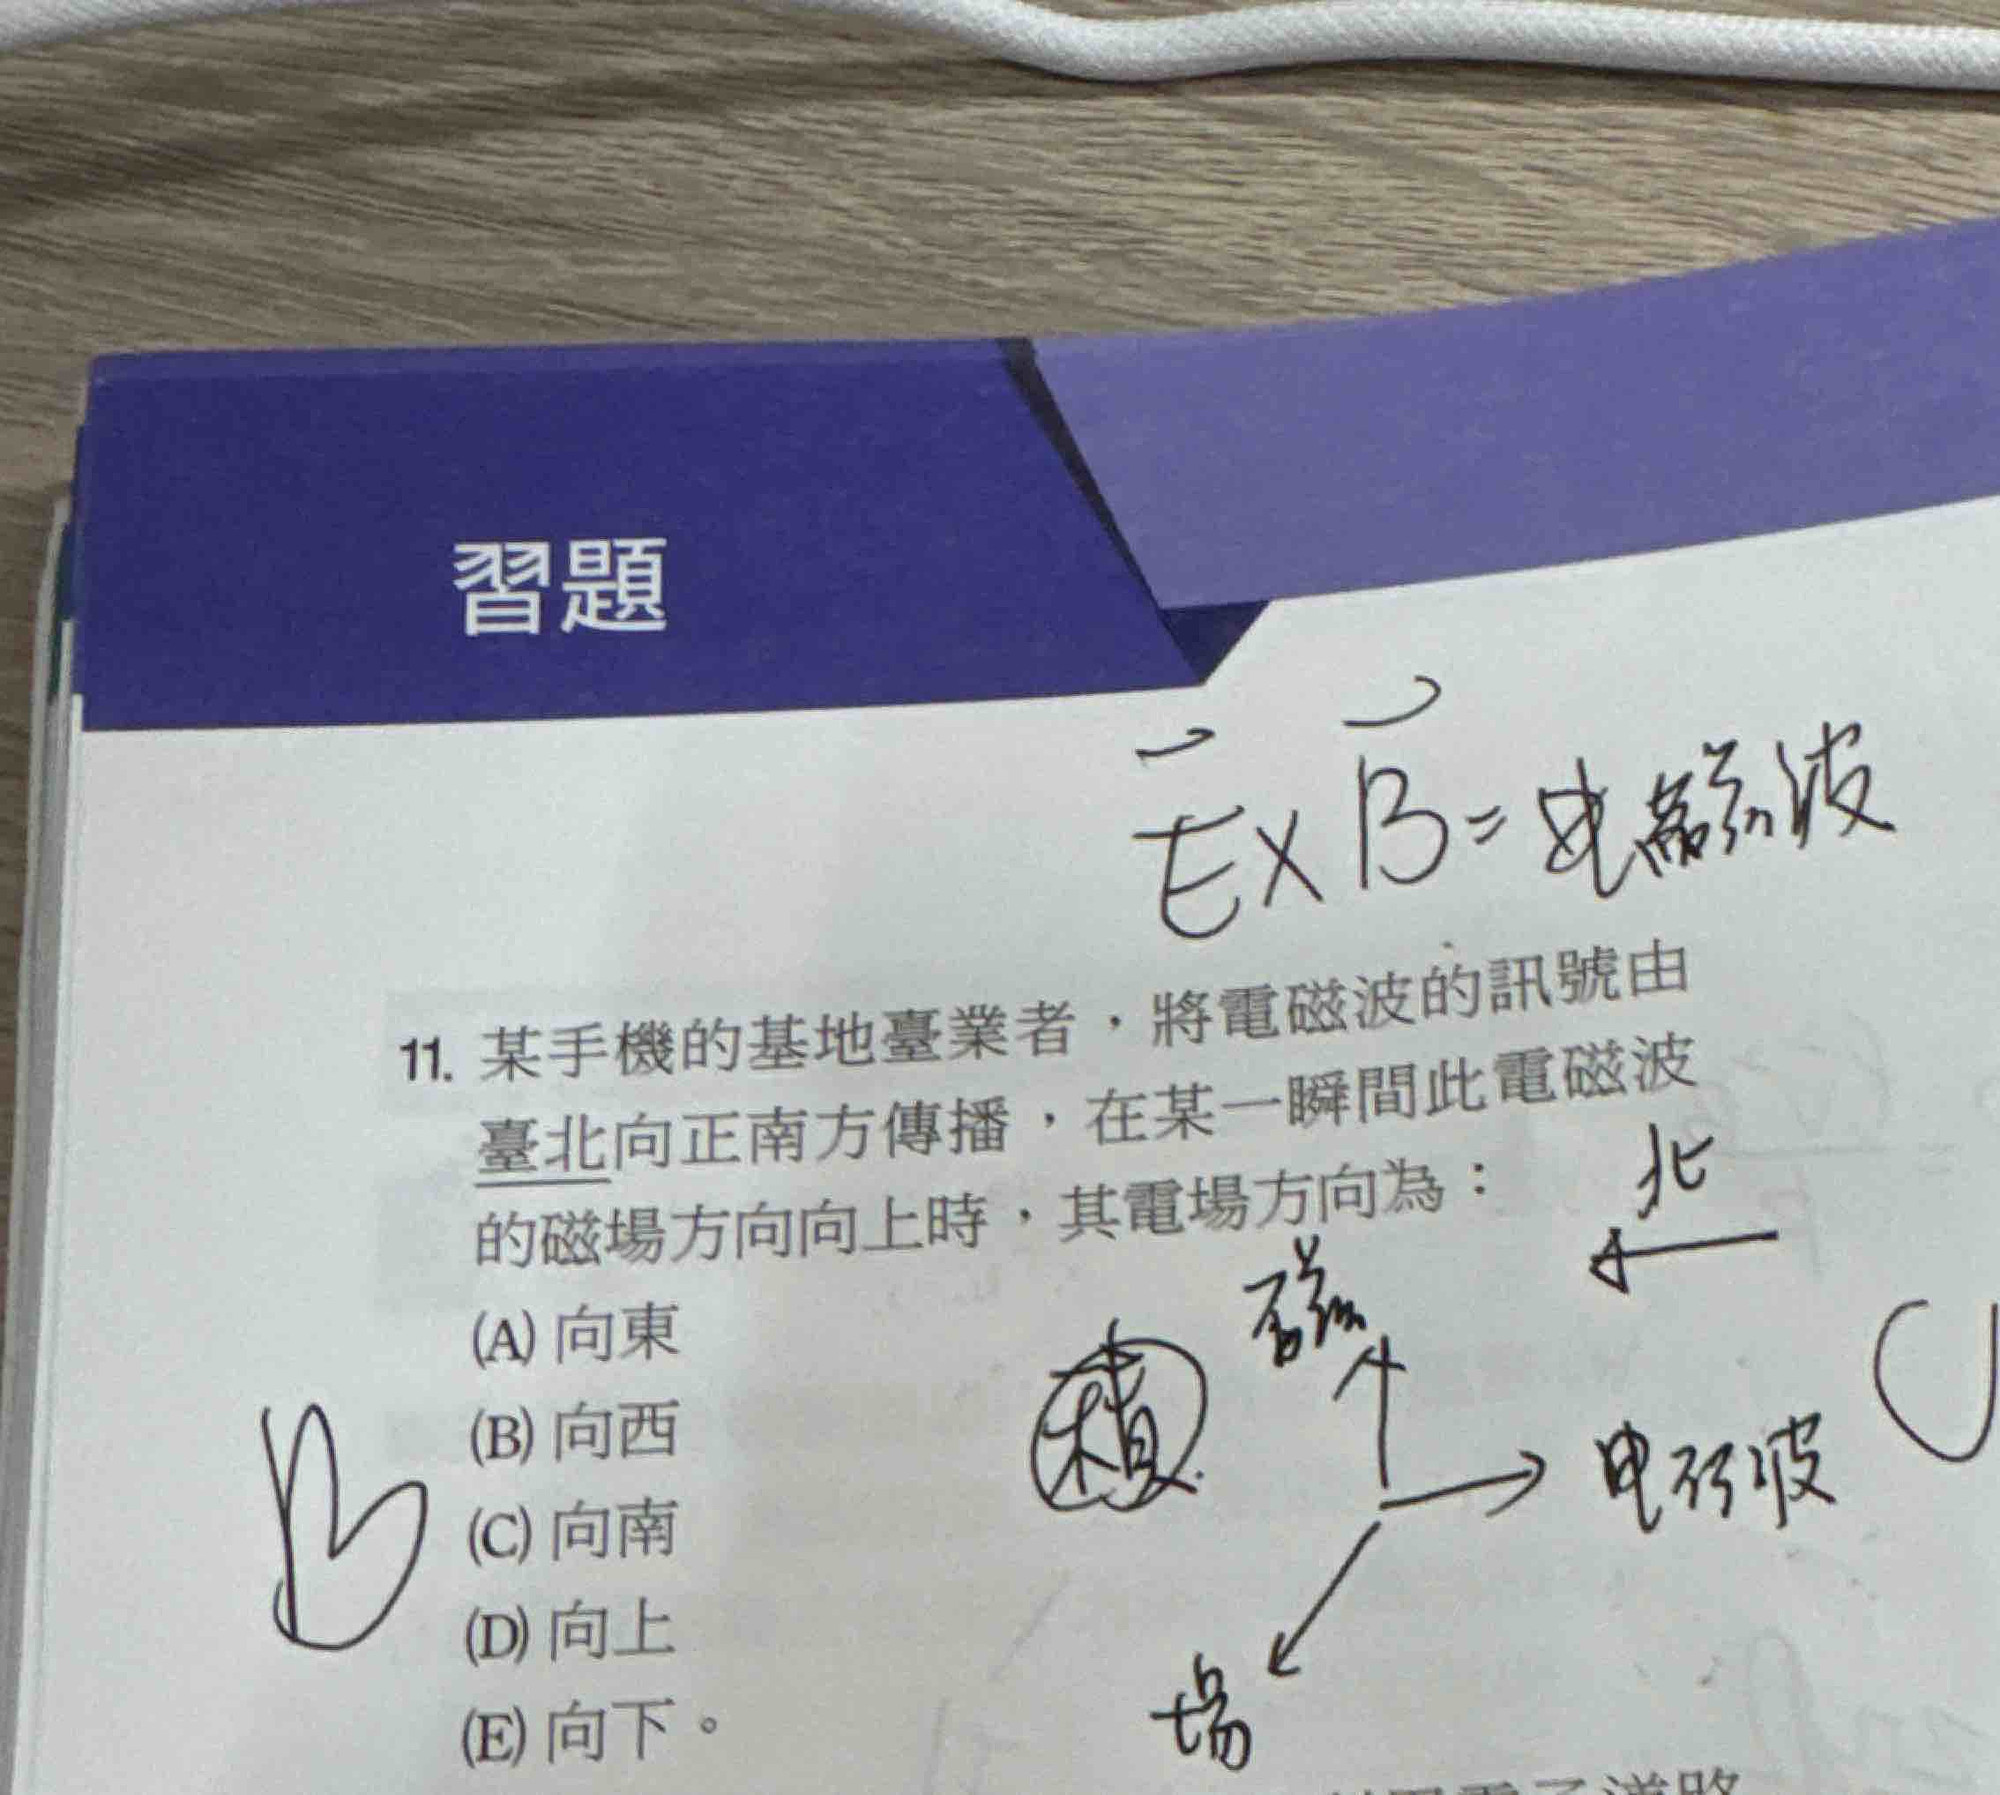 習題
E×B=电磁波
11. 某手機的基地臺業者，將電磁波的訊號由
臺北向正南方傳播，在某一瞬間此電磁波
的磁場方向向上時，其電場方向為：
北
(A) 向東
磁
(B) 向西
电磁波
(C) 向南
B
(D) 向上
場
(E) 向下。